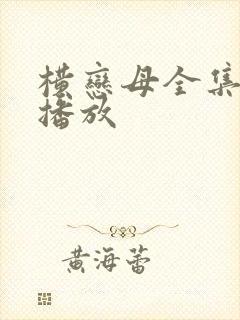 横戀母全集
播放
黄海蕾